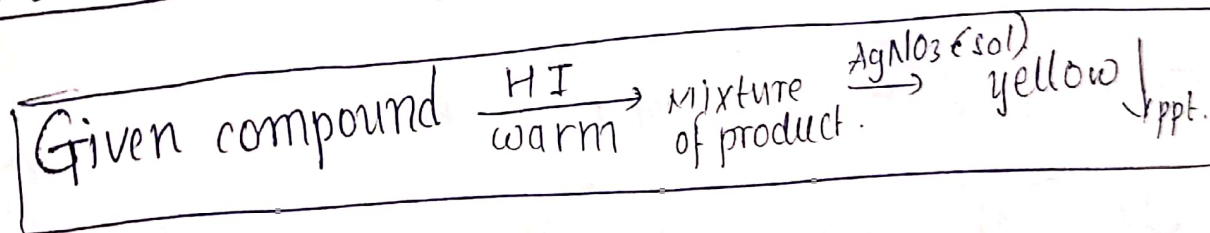 Given compound HI warm → Mixture of product. AgNO3 (sol) → yellow ↓ ppt.